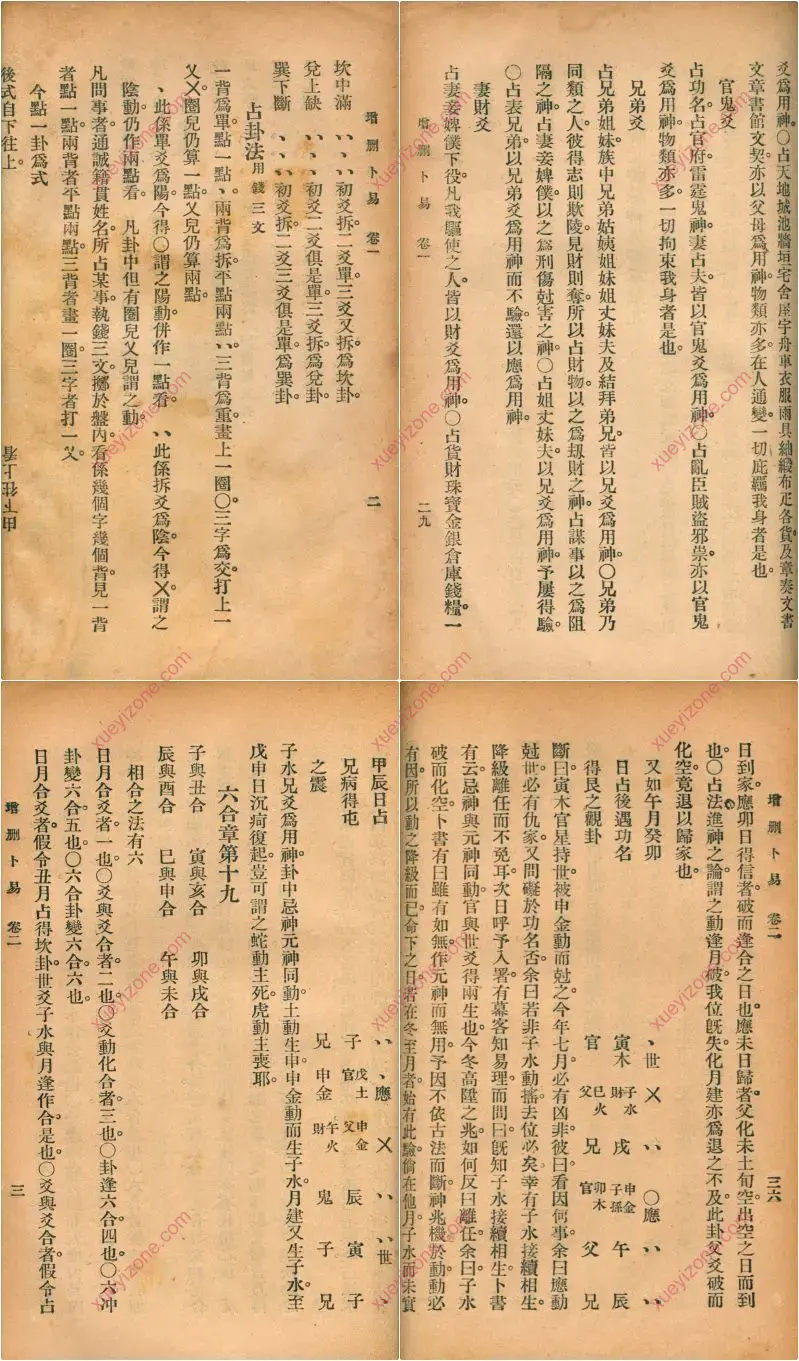 增刪卜易 卷一 二
坎中滿 、、、初爻拆。二爻單。三爻又拆。爲坎卦
兌上缺 、、、初爻二爻俱是單。三爻拆。爲兌卦
巽下斷 、、、初爻拆。二爻三爻俱是單。爲巽卦
占卦法用錢三文
一背爲單。點一點、兩背爲拆。平點兩點、、三背爲重。畫上一圈〇三字爲交。打上一
乂〤圈兒仍算一點。乂兒仍算兩點。
、此係單爻爲陽。今得〇謂之陽動。併作一點看 、、此係拆爻爲陰。今得〤謂之
陰動。仍作兩點看 凡卦中但有圈兒乂兒謂之動。
凡問事者。通誠籍貫姓名。所占某事。執錢三文。擲於盤內。看係幾個字幾個背。見一背
者點一點。兩背者平點兩點。三背者畫一圈。三字者打一乂。
今點一卦爲式
後式自下往上。
增刪卜易 卷一 二九
爻爲用神。〇占天地城池牆垣宅舍屋宇舟車衣服雨具紬緞布疋各貨及章奏文書
文章書館文契。亦以父母爲用神。物類亦多。在人通變。一切庇䕶我身者是也。
官鬼爻
占功名。占官府雷霆鬼神。妻占夫。皆以官鬼爻爲用神。〇占亂臣賊盜邪祟。亦以官鬼
爻爲用神。物類亦多。一切拘束我身者是也。
兄弟爻
占兄弟姐妹。族中兄弟。姑姨姐妹。姐丈妹夫。及結拜弟兄。皆以兄爻爲用神。〇兄弟乃
同類之人。彼得志則欺陵。見財則奪。所以占財物以之爲刼財之神。占謀事以之爲阻
隔之神。占妻妾婢僕以之爲刑傷尅害之神。〇占姐丈妹夫。以兄爻爲用神。予屢得驗
〇占表兄弟。以兄弟爻爲用神而不驗。還以應爲用神。
妻財爻
占妻妾婢僕下役。凡我驅使之人。皆以財爻爲用神。〇占貨財珠寶金銀倉庫錢糧。一
增刪卜易 卷二 三
甲辰日占
兄病得屯
之震
、、 、應 〤 、、 、、世 、
子 戌土 申金 辰 寅 子
兄 官 父 鬼 子 兄
申金 午火
財
子水兄爻爲用神。卦中忌神元神同動。土動生申。申金動而生子水。月建又生子水。至
戊申日沉疴復起。豈可謂之蛇動主死。虎動主喪耶。
六合章第十九
子與丑合 寅與亥合 卯與戌合
辰與酉合 巳與申合 午與未合
相合之法有六
日月合爻者一也。〇爻與爻合者二也。〇爻動化合者三也。〇卦逢六合四也。〇六冲
卦變六合五也。〇六合卦變六合六也。
日月合爻者。假令丑月占得坎卦。世爻子水。與月逢作合是也。〇爻與爻合者。假令占
增刪卜易 卷二 三六
日到家。應卯日得信者。破而逢合之日也。應未日歸者。父化未土旬空。出空之日而到
也。〇占法進神之論。謂之動逢月破。我位旣失。化月建亦爲退之不及。此卦父爻破而
化空。竟退以歸家也。
又如午月癸卯
日占後遇功名
得艮之觀卦
、世 〤 、、 〇應 、、 、、
寅木 子水 戌 申金 午 辰
官 財 兄 子孫 父 兄
巳火 卯木
父 官
斷曰。寅木官星持世。被申金動而尅之。今年七月必有凶非。彼曰看因何事。余曰。應動
尅世。必有仇家。又問礙於功名否。余曰。若非子水動搖。去位必矣。幸有子水接續相生。
降級離任而不免耳。次日呼予入署。有幕客知易理而問曰。旣知子水接續相生。卜書
有云。忌神與元神同動。官與世爻得兩生也。今冬高陞之兆。如何反曰離任。余曰。子水
破而化空。卜書有曰。雖有如無。作元神而無用。予因不依古法而斷。神兆機於動。動必
有因。所以動之降級而已。命下之日。若在冬至月者。始有此驗。倘在他月。子水而未實